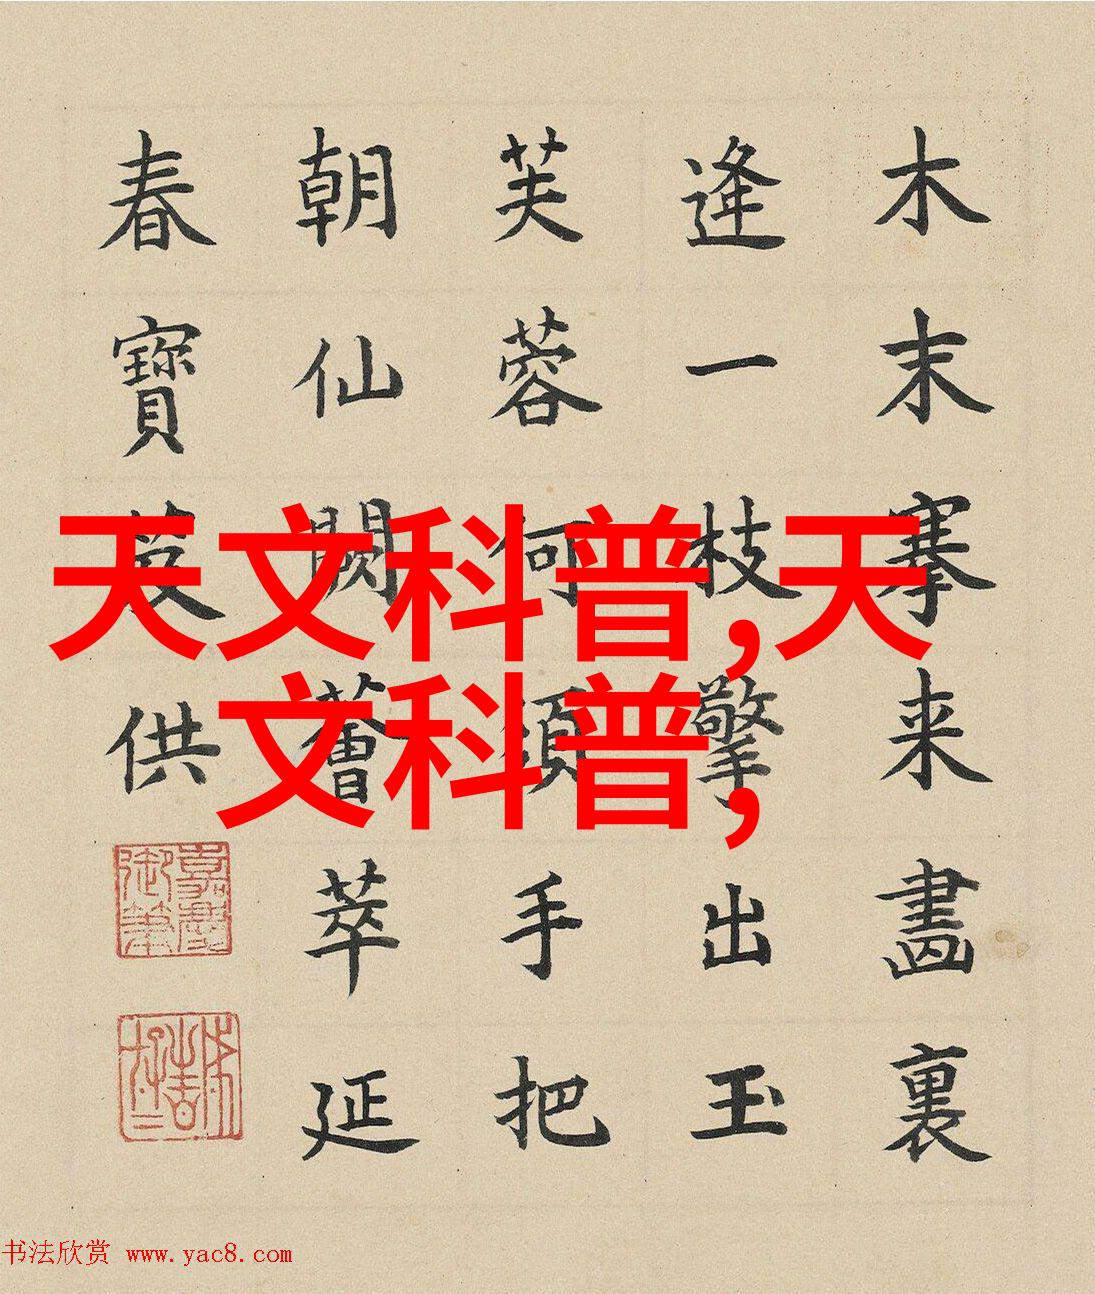 木末搴来畵裏
逢一枝擎出玉
芙蓉何須手把
朝仙闕薈萃延
春寶供
嘉慶御筆
天文科普,天
文科普,
书法欣赏 www.yac8.com